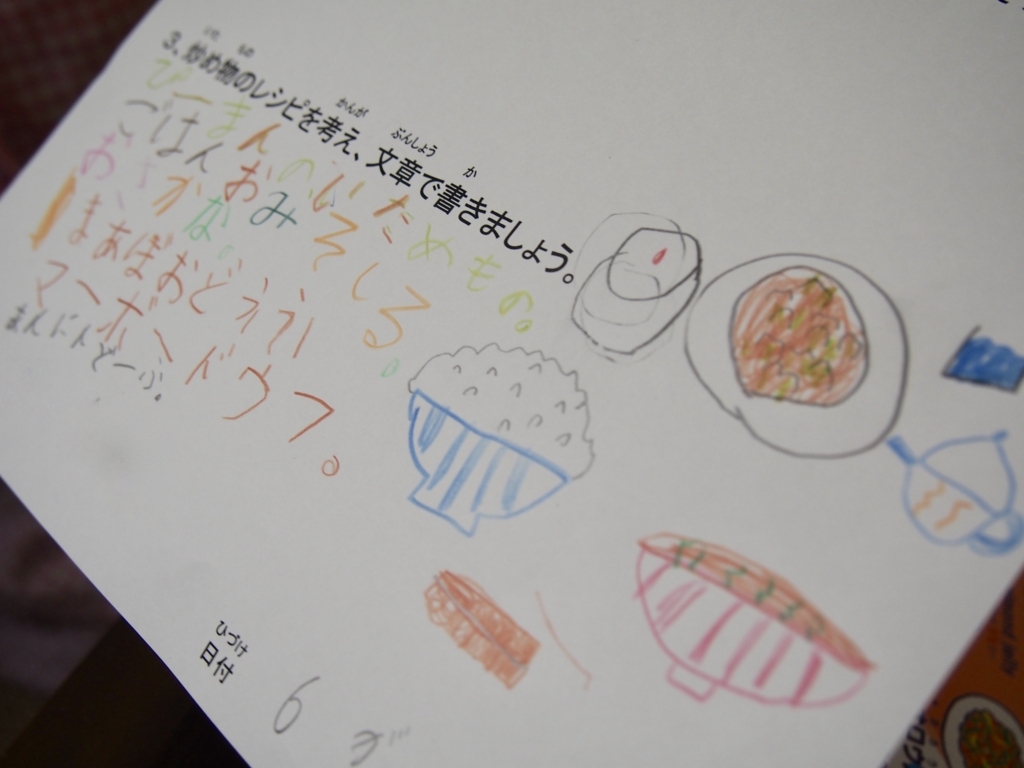 3、炒め物のレシピを考え、文章で書きましょう。
ぴーまんのいため もの。
ごはん おみそしる。
おさかな。
まあぼおどうふ
マーボードウフ。
まんにんどーふ。
日付
6